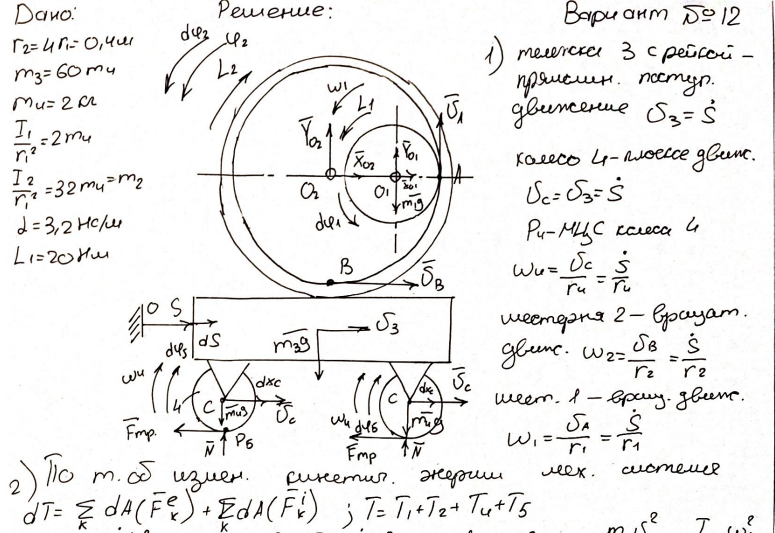 Дано:
r₂=4r₁=0,4м
m₃=60m₄
m₄=2кг
I₁/r₁²=2m₄
I₂/r₁²=32m₄=m₂
α=3,2Нс/м
L₁=20Нм
Решение:
dφ₂ φ₂
L₂
ω₁
L₁
V̄A
Ȳ₀₂
X̄₀₂
Ȳ₀₁
X̄₀₁
O₂
O₁
A
m̄₁g
dφ₁
B
V̄B
O S
dS
m̄₃g
V̄₃
ω₄
dφ₅
4
C
dxc
V̄c
m̄₄g
F̄тр.
N̄
P₅
ω₄ dφ₅
C
dxc
V̄c
m̄₄g
F̄тр
N̄
Вариант №12
1) тележка 3 с рейкой –
прямолин. поступ.
движение V₃=Ṡ
колесо 4–плоское движ.
Vc=V₃=Ṡ
P₄–МЦС колеса 4
ω₄=Vc/r₄=Ṡ/r₄
шестерня 2–вращат.
движ. ω₂=VB/r₂=Ṡ/r₂
шест. 1–вращ. движ.
ω₁=VA/r₁=Ṡ/r₁
2) По т. об измен. кинетич. энергии мех. системы
dT=∑k dA(F̄kᵉ)+∑k dA(F̄kⁱ) ; T=T₁+T₂+T₄+T₅